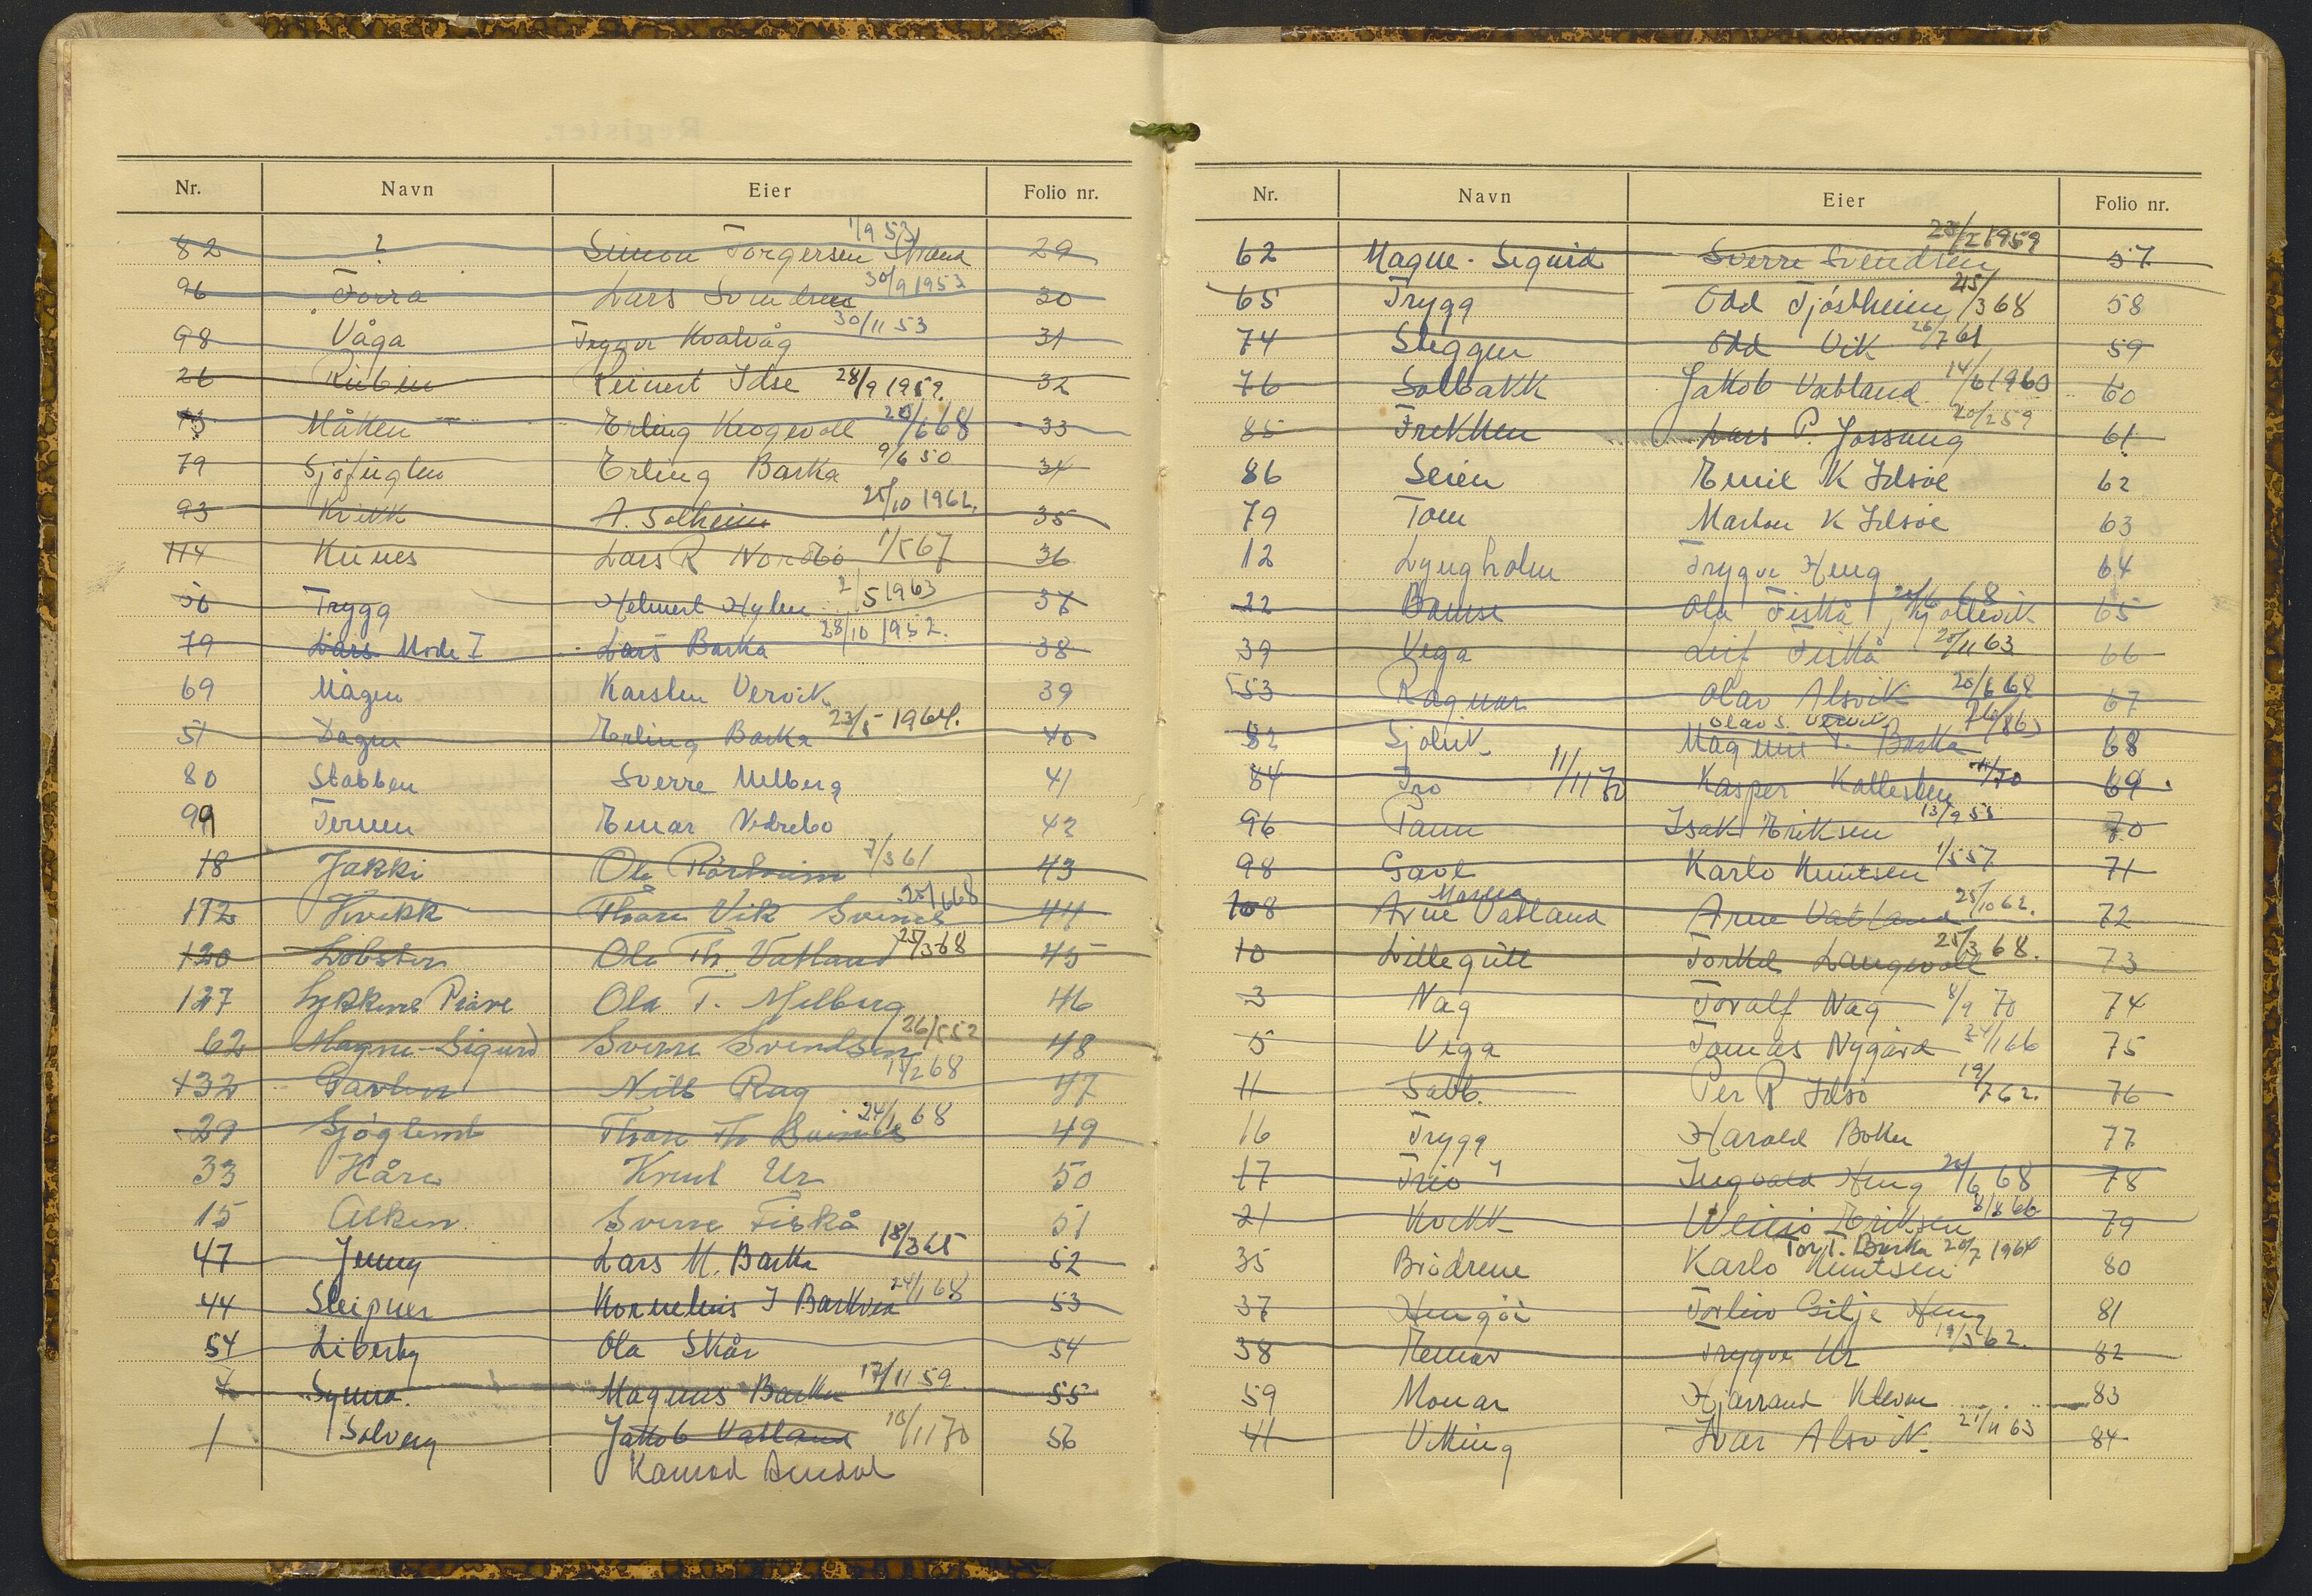 Nr. Navn Eier Folio nr.
82 ? Simon Torgersen Strand 1/9 53 29
96 Torra Lars Svendsen 30/9 1953 30
98 Våga Trygve Kvalvåg 30/11 53 31
26 Rubin Reinert Idse 28/9 1959. 32
13 Måken Erling 20/6 68 33
79 Sjöfuglen Erling Barka 9/6 50 34
93 Kvikk A. Solheim 25/10 1962. 35
114 Lars R Nordbö 1/5 67 36
56 Trygg Helmert Hylen 2/5 1963 37
79 Lars Mode I Lars Barka 28/10 1952. 38
69 Mågen Karsten Vervik 39
51 Dagen Erling Barka 23/5 1964. 40
80 Stabben Sverre Melberg 41
99 Ternen Einar Vedrebo 42
18 Jakki Ola 7/3 61 43
112 Kvikk Thore Vik Svines 25/6 68 44
120 Lobster Ola Th. Vatland 25/3 68 45
127 Lykkens Pröve Ola T. Melberg 46
62 Magne-Sigurd Sverre Svendsen 26/5 52 48
132 Nils Rag 17/2 68 47
29 Sjöglimt Thore Th Svines 24/1 68 49
33 Håra Knut Ur 50
15 Alken Sverre Fiskå 51
47 Jenny Lars M. Barka 18/3 65 52
44 Sleipner Kornelius I Barkved 24/1 68 53
54 Liberty Ola Skår 54
4 Symra. Magnus Barka 17/11 59 55
1 Solveig Jakob Vatland 10/11 70 56
Konrad
Nr. Navn Eier Folio nr.
62 Magne-Sigurd Sverre Svendsen 23/2 1959 57
65 Trygg Odd Tjöstheim 25/3 68 58
74 Skeggen Odd Vik 26/7 61 59
76 Solbakk Jakob Vatland 14/6 1960 60
85 Frekken Lars P. Jössang 20/2 59 61
86 Seien Emil K Idsöe 62
79 Tom Marton K Idsöe 63
12 Lyngholm Trygve Heng 64
22 Bamse Ola Fiskå, Kjöllevik 20/6 68 65
39 Vega Leif Fiskå 20/11 63 66
53 Ragnar Olav Alsvik 20/6 68 67
Olav S. Vervik
82 Sjöblik Magnus T. Barka 7/6 63 68
84 Tro 11/11 70 Kasper Kallesten 11/70 69
96 Tann Isak Eriksen 13/9 55 70
98 Gavl Karlo Knutsen 1/5 57 71
Marna
108 Arne Vatland Arne Vatland 25/10 62. 72
10 Lillegutt Torkel Langevoll 25/3 68. 73
3 Nag Torolf Nag 8/9 70 74
5 Vega Tomas Nygård 24/1 66 75
11 Sabb. Per R Idsö 19/7 62. 76
16 Trygg Harald Böker 77
17 Trio I Ingvald Heng 20/6 68 78
21 Kvikk Eriksen 8/8 66 79
Tor T. Barka 20/7 1964
35 Brödrene Karlo Knutsen 80
37 Hengöi Torleiv Gilje Heng 81
38 Remar Trygve Ur 19/3 62. 82
59 Monar Hjarrand Kleven 83
41 Viking Ivar Alsvik 21/11 63 84